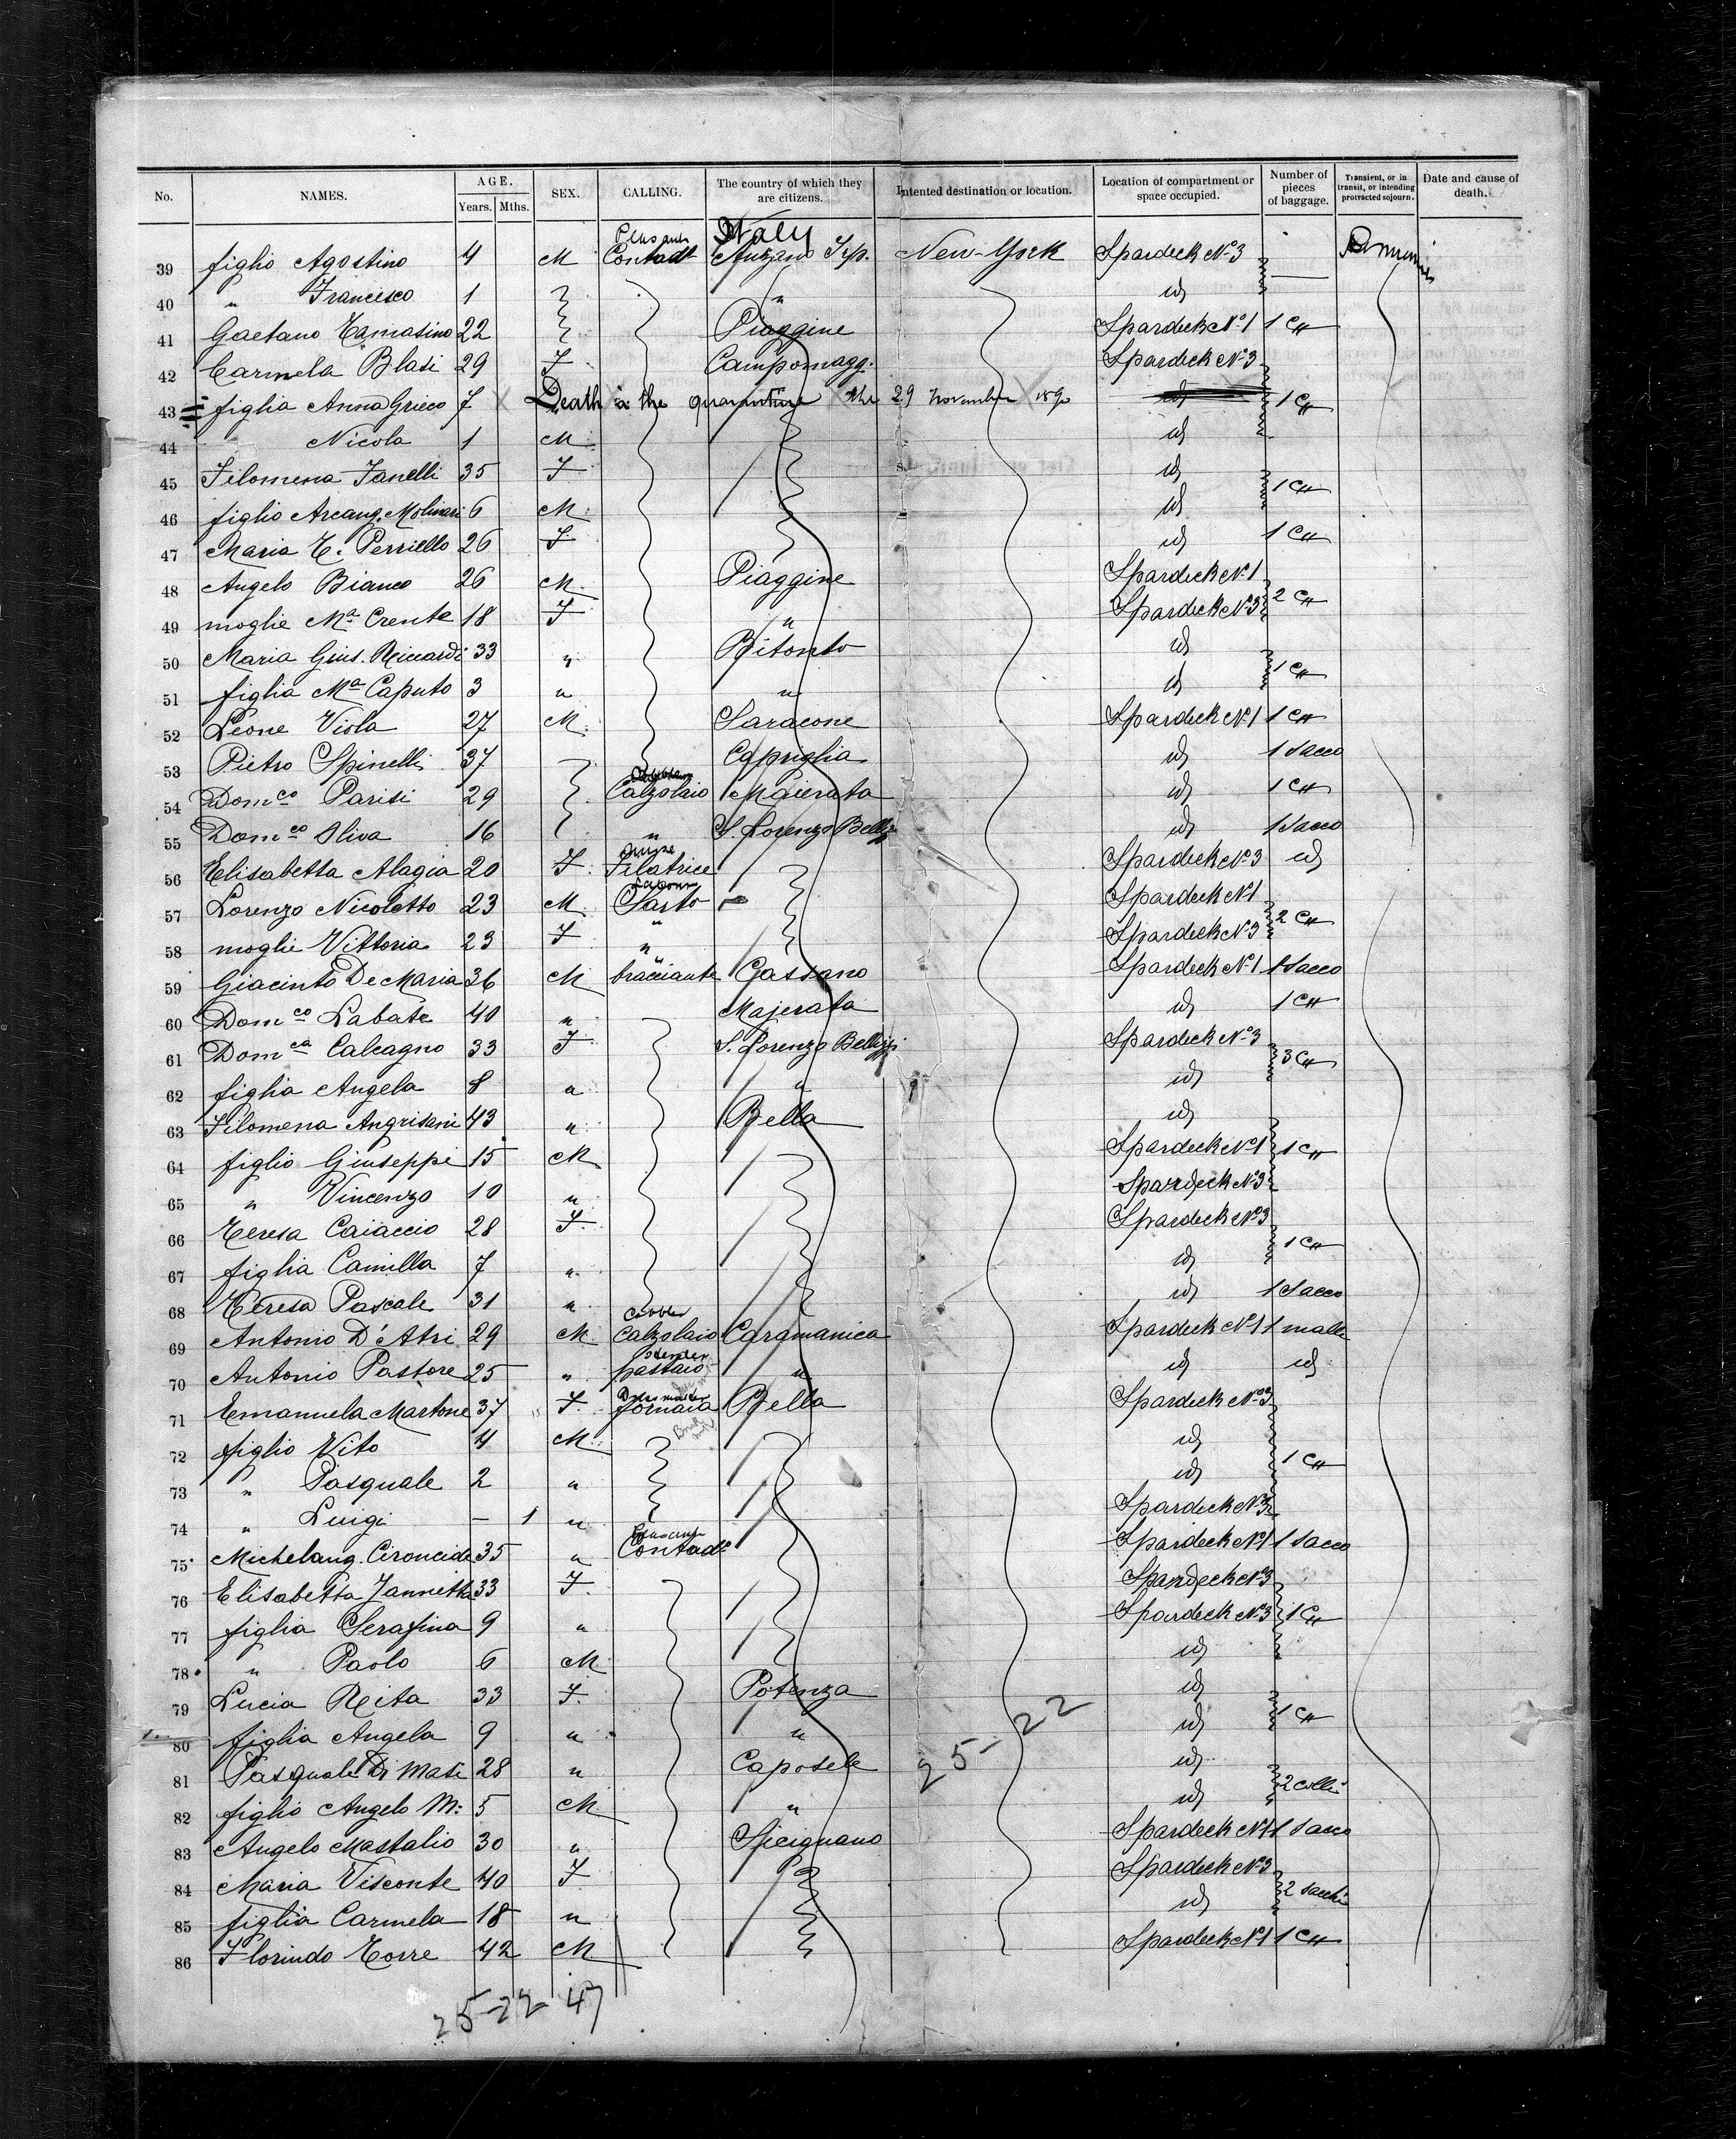 No. NAMES. AGE. Years. Mths. SEX. CALLING. The country of which they are citizens. Intented destination or location. Location of compartment or space occupied. Number of pieces of baggage. Transient, or in transit, or intending protracted sojourn. Date and cause of death.
Italy
39 figlio Agostino 4 M Contad. New-York Spardeck No 3
40 " Francesco 1 " id
41 Gaetano Tamasino 22 Piaggine Spardeck No 1 1 C
42 Carmela Blasi 29 F Campomagg. Spardeck No 3
43 figlia Anna Grieco 7 Death in the quarantine the 29 november 1890 id 1 C
44 Nicola 1 M id
45 Filomena Ianelli 35 F id
46 figlio Arcang. Molinari 6 M id 1 C
47 Maria T. Perriello 26 F id 1 C
48 Angelo Bianco 26 M Piaggine Spardeck No 1
49 moglie Ma Crente 18 F " Spardeck No 3 2 C
50 Maria Gius. Riccardi 33 " Bitonto id
51 figlia Ma Caputo 3 " " id 1 C
52 Leone Viola 27 M Saracone Spardeck No 1 1 C
53 Pietro Spinelli 37 Capriglia id 1 Sacco
54 Domco Parisi 29 Calzolaio Maierata id 1 C
55 Domco Oliva 16 " S. Lorenzo Belliz id 1 Sacco
56 Elisabetta Alagia 20 F Filatrice Spardeck No 3 id
57 Lorenzo Nicoletto 23 M Sarto Spardeck No 1
58 moglie Vittoria 23 F " Spardeck No 3 2 C
59 Giacinto De Maria 36 M bracciante Cassano Spardeck No 1 1 Sacco
60 Domco Labate 40 " Majerata id 1 C
61 Domca Calcagno 33 F S. Lorenzo Bellizzi Spardeck No 3
62 figlia Angela 8 " " id 3 C
63 Filomena Angrisani 43 " Bella id
64 figlio Giuseppe 15 M Spardeck No 1 1 C
65 " Vincenzo 10 " Spardeck No 3
66 Teresa Caiaccio 28 F Spardeck No 3
67 figlia Camilla 7 " id 1 C
68 Teresa Pascale 31 " id 1 Sacco
Cobbler
69 Antonio D'Atri 29 M Calzolaio Caramanica Spardeck No 1 1 malle
70 Antonio Pastore 25 " pastaio " id id
71 Emanuela Martone 37 F fornaia Bella Spardeck No 3
72 figlio Vito 4 M id
73 " Pasquale 2 " id 1 C
74 " Luigi — 1 " Spardeck No 3
75 Michelang. Cironcide 35 " Contad. Spardeck No 1 1 Sacco
76 Elisabetta Jannetta 33 F Spardeck No 3
77 figlia Serafina 9 " Spardeck No 3 1 C
78 " Paolo 6 M id
79 Lucia Reita 33 F Potenza id
80 figlia Angela 9 " " id 1 C
81 Pasquale Di Masi 28 " Caposele id
82 figlio Angelo M: 5 M " id 2 colli
83 Angelo Mastalio 30 " Sicignano Spardeck No 1 1 Sacco
84 Maria Visconte 40 F Spardeck No 3
85 figlia Carmela 18 " id 2 sacchi
86 Florindo Torre 42 M Spardeck No 1 1 C
25- 22
25-22-47